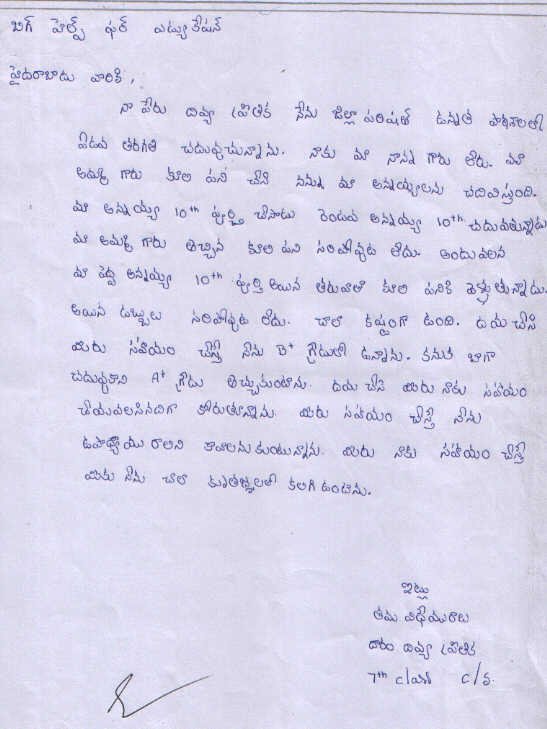 బిగ్ హెల్ప్ ఫర్ ఎడ్యుకేషన్
హైదరాబాదు వారికి,
నా పేరు దివ్య ప్రతిక నేను జిల్లా పరిషత్ ఉన్నత పాఠశాలలో
ఏడవ తరగతి చదువుచున్నాను. నాకు మా నాన్న గారు లేరు. మా
అమ్మ గారు కూలి పని చేసి నన్ను మా అన్నయ్యలను చదివిస్తుంది.
మా అన్నయ్య 10th పూర్తి చేసాడు రెండవ అన్నయ్య 10th చదువుతున్నాడు
మా అమ్మ గారు తెచ్చిన కూలి పని సరిపోవుట లేదు. అందువలన
మా పెద్ద అన్నయ్య 10th పూర్తి అయిన తరువాత కూలి పనికి వెళ్ళుతున్నాడు.
అయిన డబ్బులు సరిపోవుట లేదు. చాలా కష్టంగా ఉంది. దయచేసి
మీరు సహాయం చేస్తే నేను B+ గ్రేడులో ఉన్నాను. కనుక బాగా
చదువుకొని A+ గ్రేడు తెచ్చుకుంటాను. దయ చేసి మీరు నాకు సహాయం
చేయవలసినదిగా కోరుతున్నాను. మీరు సహాయం చేస్తే నేను
ఉపాధ్యాయురాలిని కావాలనుకుంటున్నాను. మీరు నాకు సహాయం చేస్తే
మీకు నేను చాలా కృతజ్ఞలతో కలిగి ఉంటాను.
ఇట్లు
తమ విధేయురాలు
దారం దివ్య ప్రతిక
7th class